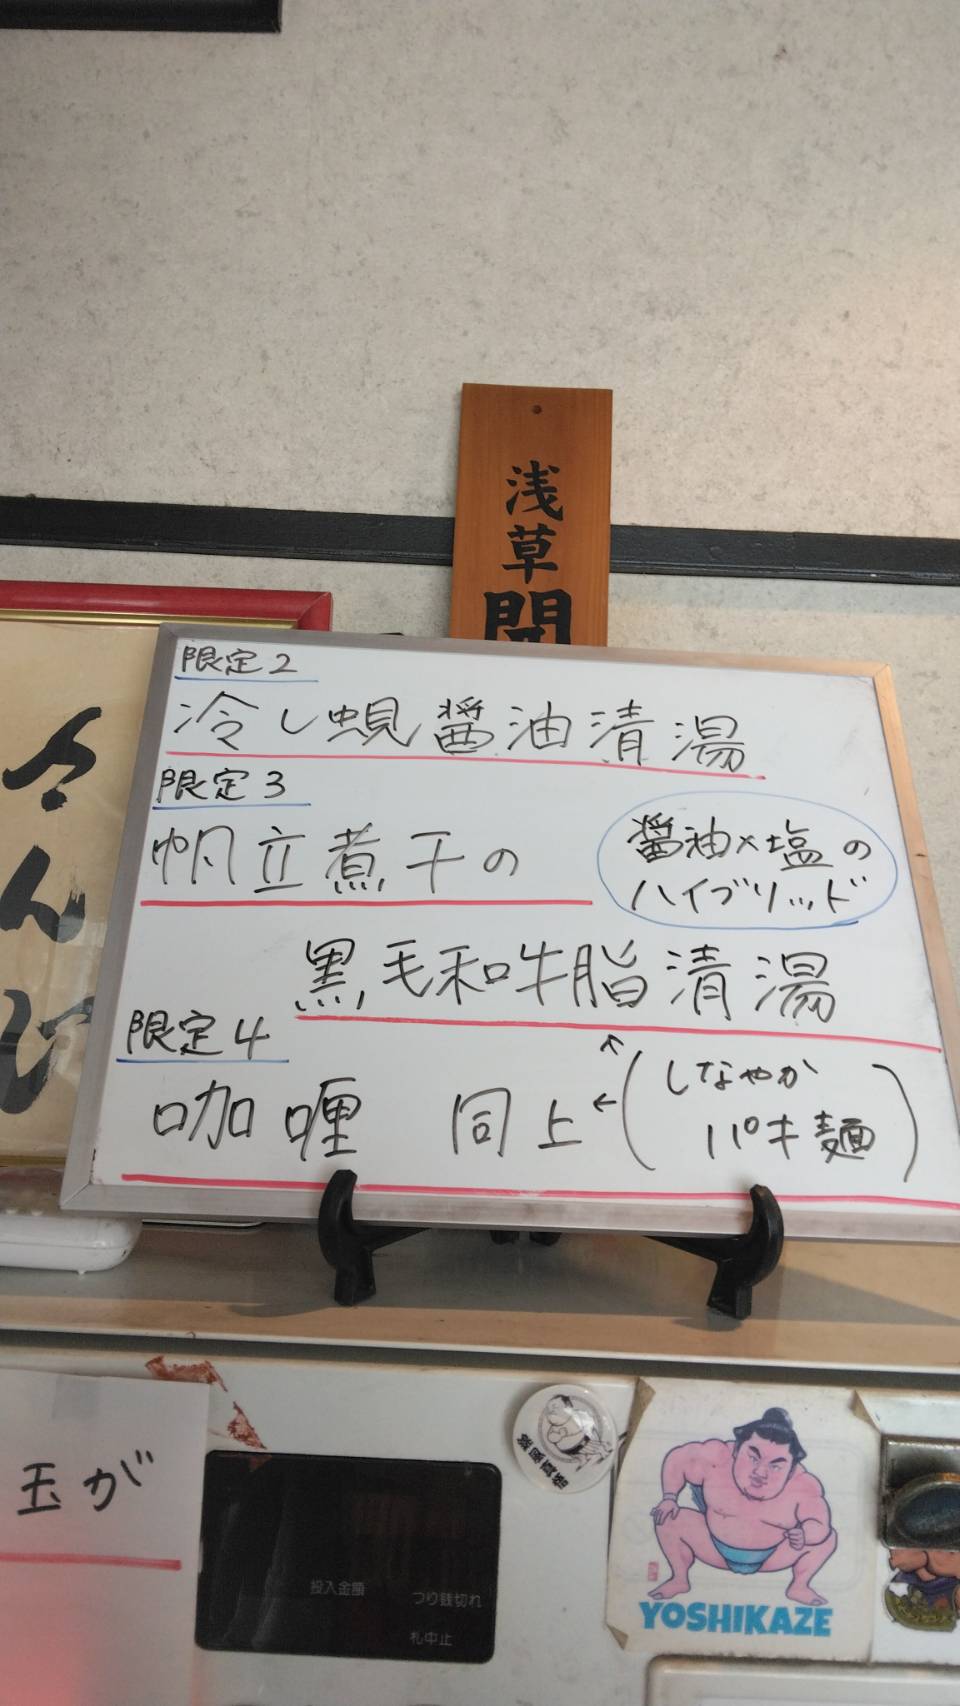 浅草開
限定2
冷し蜆醤油清湯
限定3
帆立煮干の
醤油×塩の
ハイブリッド
黒毛和牛脂清湯
限定4
咖喱 同上 ← (しなやか
パキ麺)
玉が
投入金額
つり銭切れ
札中止
YOSHIKAZE